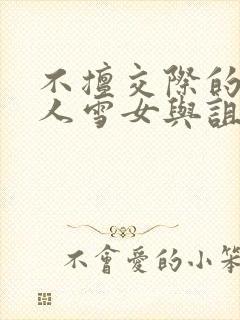 不擅交際的
人雪女與詛
不會愛的小笨